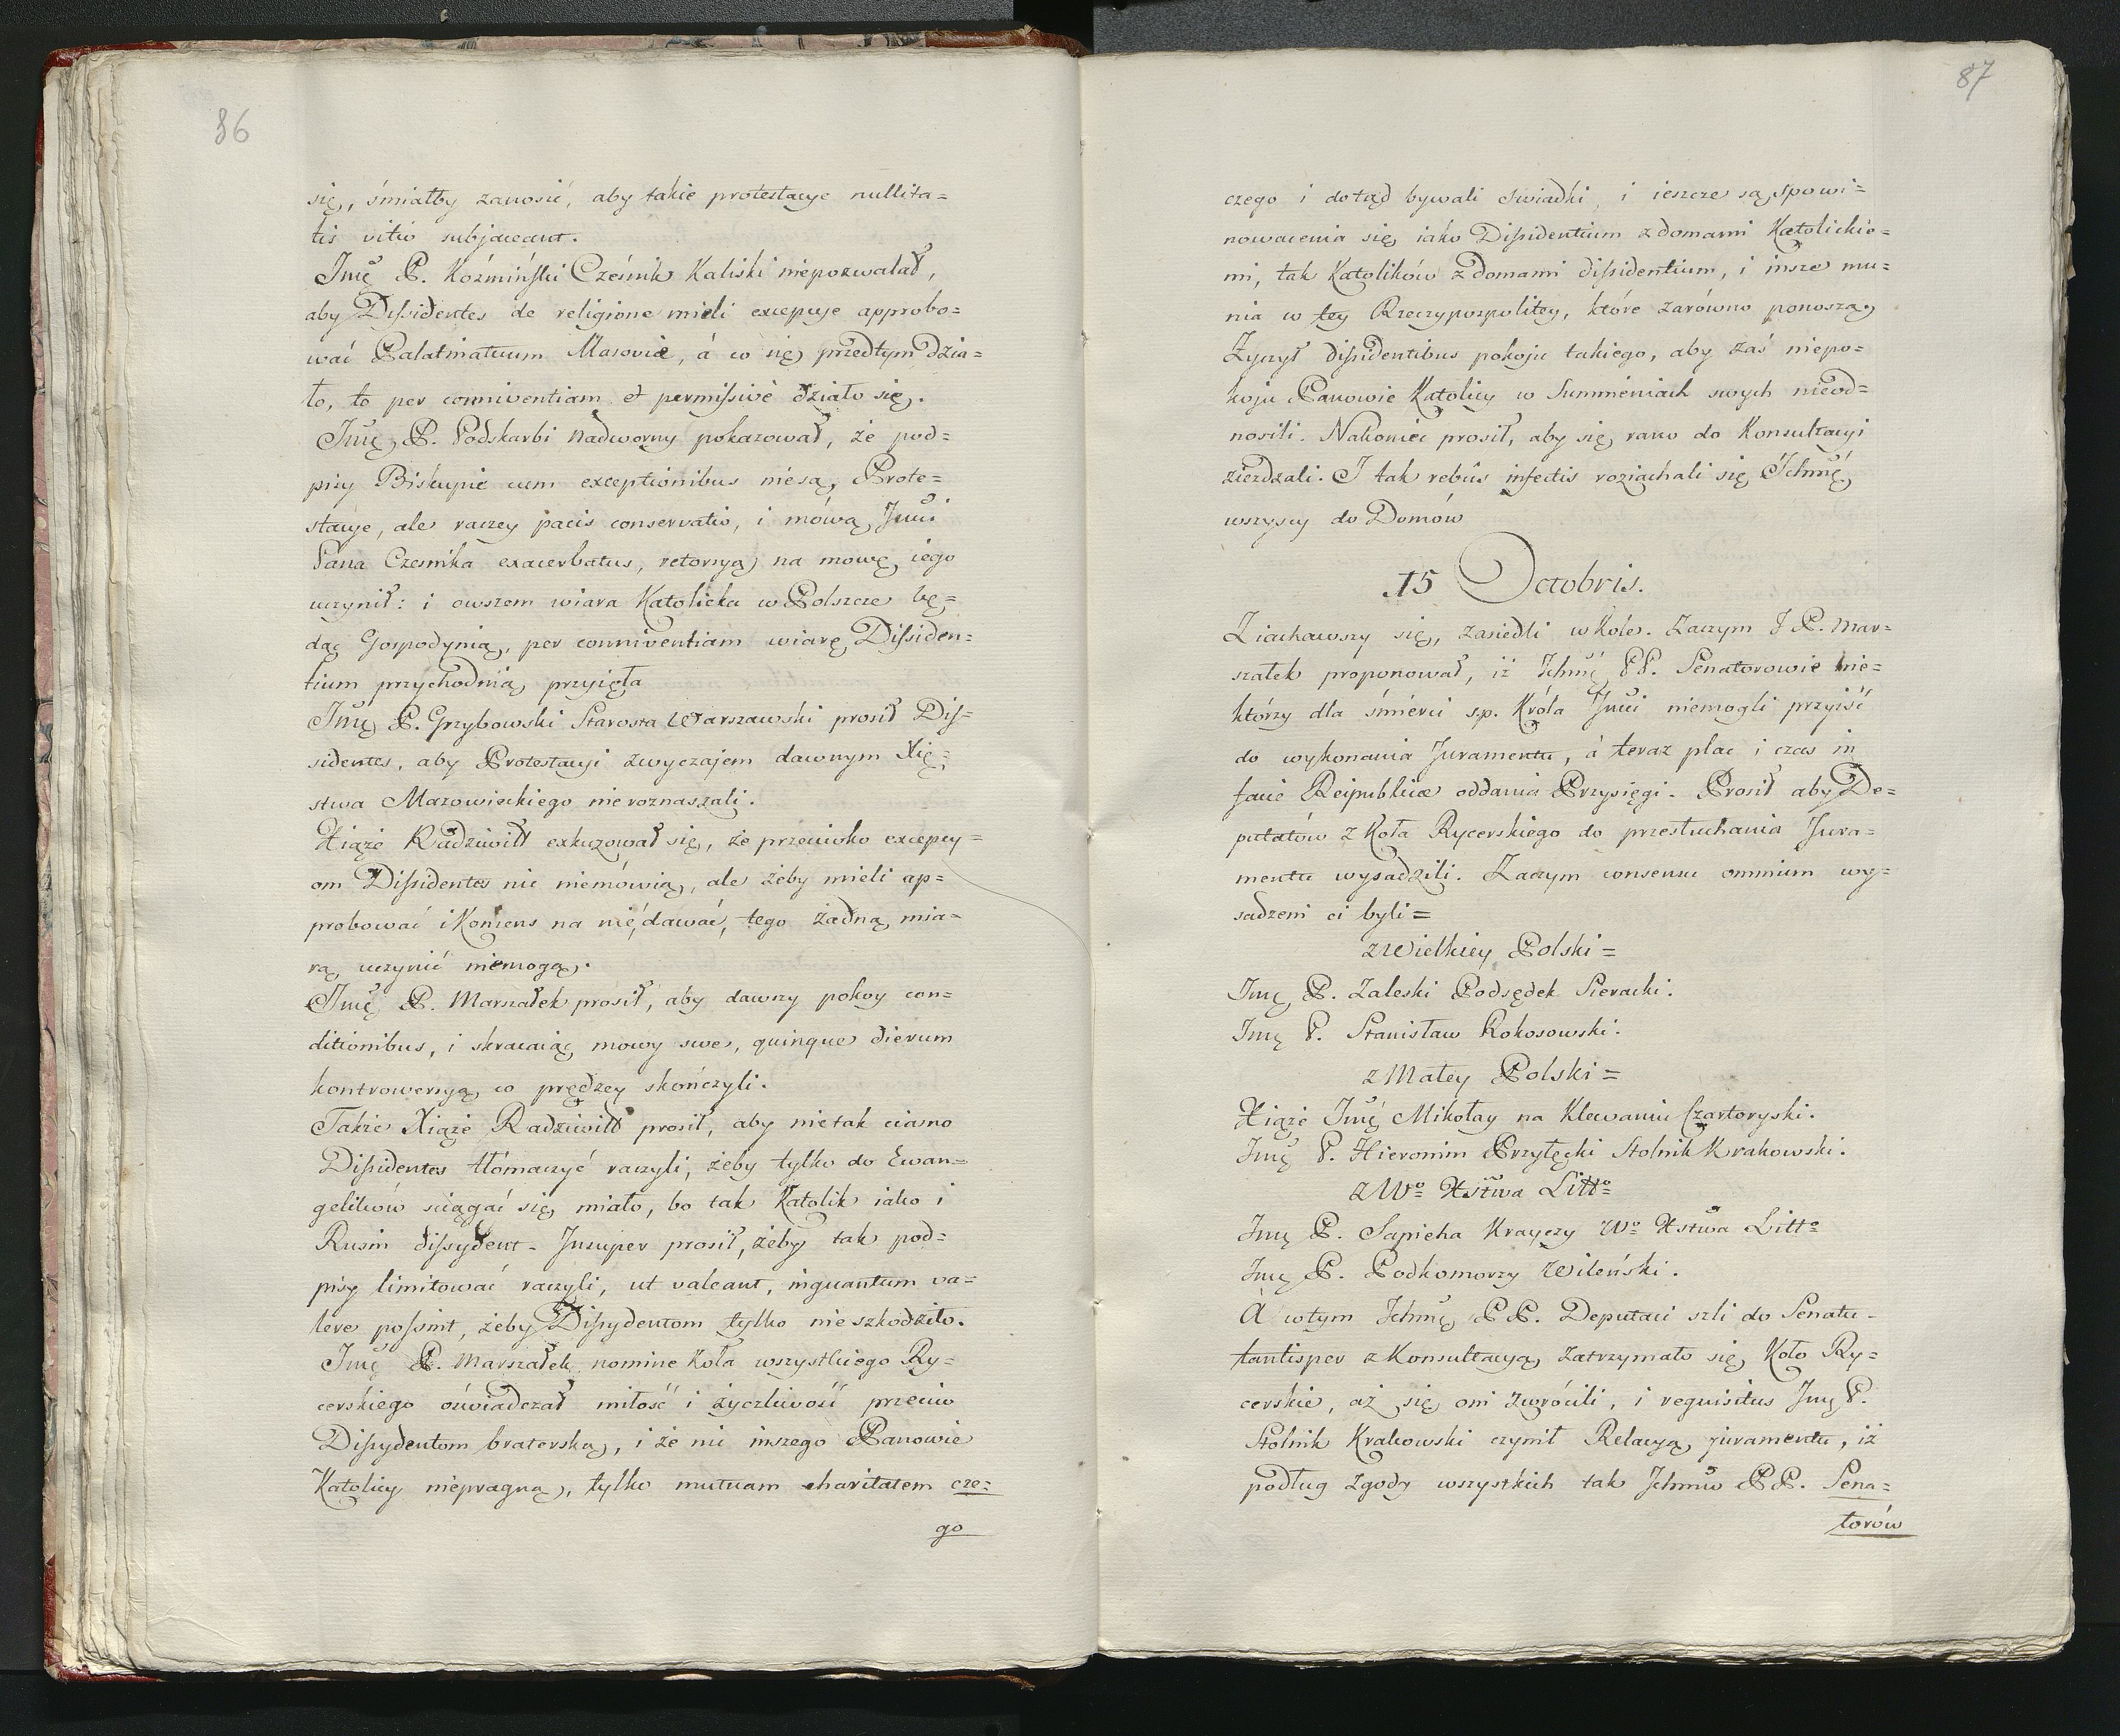 86
się, śmiałby zanosić, aby takie protestacye nullita=
tis vitio subjaceant.
Jmę P. Koźmiński Cześnik Kaliski niepozwalał,
aby Dissidentes de religione mieli excepcye approbo=
wać Palatinatuum Masoviæ, á co się przedtym dzia=
ło, to per conniventiam et permissivè działo się.
Jmę P. Podskarbi Nadworny pokazował, że pod=
pisy Biskupie cum exceptionibus niesą Prote=
stacye, ale raczey pacis conservatio, i mówą Jmci
Pana Czesnika exacerbatus, retorsyą na mowę iego
uczynił: i owszem wiara Katolicka w Polszcze bę=
dąc Gospodynią, per conniventiam wiarę Dissiden=
tium przychodnią przyięła
Jmę P. Grzybowski Starosta Warszawski prosił Dis=
sidentes, aby Protestacyi zwyczajem dawnym Xię=
stwa Mazowieckiego nieroznaszali.
Xiąże Radziwiłł exkuzował się, że przeciwko excepcy=
om Dissidentes nic niemówią, ale żeby mieli ap=
probować i Konsens na nie dawać, tego żadną mia=
rą uczynić niemogą.
Jmę P. Marszałek prosił, aby dawszy pokoy con=
ditionibus, i skracaiąc mowy swe, quinque dierum
kontrowersyą co prędzey skończyli.
Także Xiąże Radziwiłł prosił, aby nie tak ciasno
Dissidentes tłómaczyć raczyli, żeby tylko do Ewan=
gelików sciągać się miało, bo tak Katolik iako i
Rusin dissydent. Insuper prosił, żeby tak pod=
pisy limitować raczyli, ut valeant, inquantum va=
lere possint, żeby Dissydentom tylko nie szkodziło.
Jmę P. Marszałek nomine Koła wszystkiego Ry=
cerskiego oświadczał miłość i życzliwość przeciw
Dissydentom braterską, i że nic inszego Panowie
Katolicy niepragną, tylko mutuam charitatem cze=
go
87
czego i dotąd bywali świadki, i ieszcze są spowi=
nowacenia się iako Dissidentium z domami Katolickie=
mi, tak Katolików z domami dissidentium, i insze mu=
nia w tey Rzeczypospolitey, które zarówno ponoszą,
Życzył dissidentibus pokoju takiego, aby zaś niepo=
koju Panowie Katolicy w Summieniach swych nieod=
nosili. Nakoniec prosił, aby się rano do Konsultacyi
zieżdzali. I tak rebûs infectis roziachali się Ichmć
wszyscy do Domów
15 Octobris.
Ziachawszy się, zasiedli w Kole. Zaczym J P. Mar=
szałek proponował, iż Ichmć PP. Senatorowie nie=
którzy dla śmierci sp. Króla Jmci niemogli przyiść
do wykonania Juramentu, á teraz plac i czas in
facie Reipublicæ oddania Przysięgi. Prosił aby De=
putatów z Koła Rycerskiego do przesłuchania Jura=
mentu wysadzili. Zaczym consensu omnium wy=
sadzeni ci byli=
z Wielkiey Polski=
Jmę P. Zaleski Podsędek Sieracki.
Jmę P. Stanisław Rokosowski.
z Małey Polski=
Xiąże Jmć Mikołay na Klewaniu Czartoryski.
Jmę P. Hieronim Przyłęcki Stolnik Krakowski.
z Wo Xstwa Litto
Jmę P. Sapieha Krayczy Wo Xstwa Litto
Jmę P. Podkomorzy Wileński.
A wtym Ichmę PP. Deputaci szli do Senatu.
tantisper z Konsultacyą zatrzymało się Koło Ry=
cerskie, aż się oni zwrócili, i requisitus Jmę P.
Stolnik Krakowski czynił Relacyą juramentu, iż
podług zgody wszystkich tak Ichmciów PP. Sena=
torów